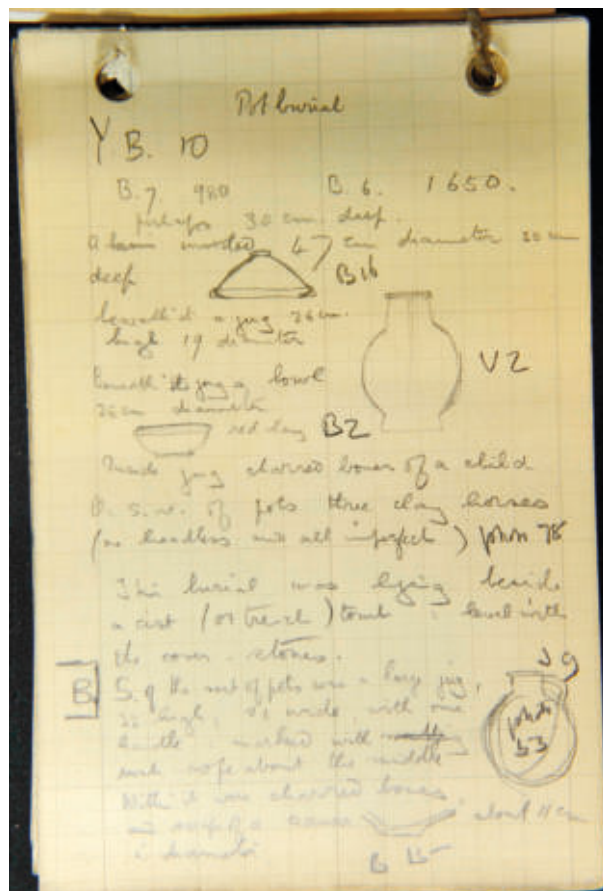 Pot burial
Y B. 10
B. 7 980 B. 6. 1650.
perhaps 30 cm. deep.
A basin inverted 47 cm diameter 20 cm
deep
B16
beneath it a jug 26 cm.
high 19 diameter
V2
beneath the jug a bowl
26 cm diameter
red clay B2
Inside jug charred bones of a child
of pots three clay horses
(one headless and all imperfect) photo 78
This burial was lying beside
a cist (or trench) tomb : level with
the cover-stones.
J 9
B. S. of the nest of pots was a large jug,
high, wide, with one
handle : marked with
rope about the middle
photo 33
Within it were charred bones
and about 11 cm
diameter
B 15